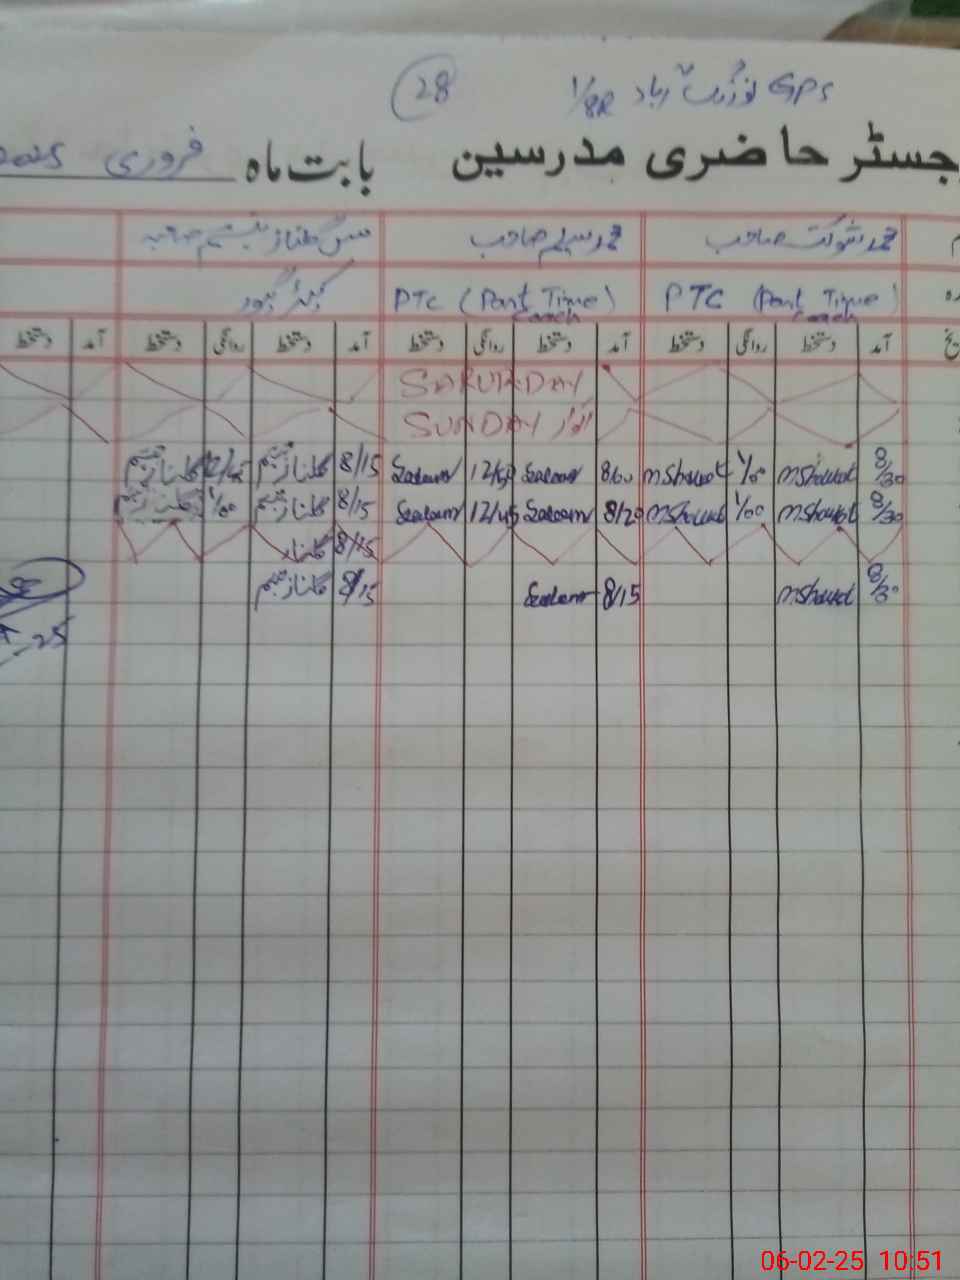 28 GPS آباد 1/8R
رجسٹر حاضری مدرسین بابت ماہ فروری 2025
محمد شوکت صاحب محمد سلیم صاحب مس گلناز تبسم صاحبہ
PTC (Part Time Coach) PTC (Part Time Coach)
آمد دستخط روانگی دستخط آمد دستخط روانگی دستخط آمد دستخط روانگی دستخط آمد دستخط
SARURDAY
SUNDAY اتوار
8/30 mshoukat 1/00 mshoukat 8/20 Saleem 12/50 Saleem 8/15 گلناز تبسم 12/45 گلناز تبسم
8/30 mshoukat 1/00 mshoukat 8/20 Saleem 12/45 Saleem 8/15 گلناز تبسم 1/00 گلناز تبسم
8/15 گلناز
8/30 mshoukat 8/15 Saleem 8/15 گلناز تبسم
06-02-25 10:51